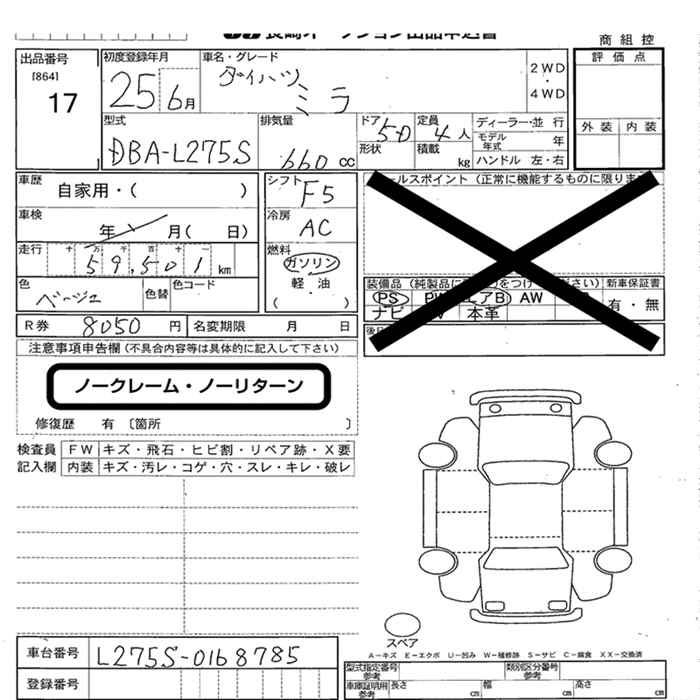 長崎オークション出品申込書
商 組 控
出品番号
[864]
17
初度登録年月
25 6月
車名・グレード
ダイハツ
ミラ
2WD
・
4WD
評 価 点
外 装 内 装
型式
DBA-L275S
排気量
660 cc
ドア 5D
形状
定員 4 人
積載 kg
ディーラー・並 行
モデル年式 年
ハンドル 左・右
車歴
自家用・( )
シフト F5
車検
年 月( 日)
冷房
AC
走行 十 万 千 百 十 一
59,501 km
燃料
ガソリン
軽・油
( )
色
ベージュ
色替
色コード
R券 8050 円 名変期限 月 日
セールスポイント (正常に機能するものに限ります)
装備品 (純製品に をつけ ださい) 新車保証書
PS PW エアB AW
ナビ 本革
有・無
注意事項申告欄 (不具合内容等は具体的に記入して下さい)
ノークレーム・ノーリターン
修復歴 有 〔箇所 〕
検査員 FW キズ・飛石・ヒビ割・リペア跡・X要
記入欄 内装 キズ・汚レ・コゲ・穴・スレ・キレ・破レ
スペア
A-キズ E-エクボ U-凹み W-補修跡 S-サビ C-腐食 XX-交換済
車台番号 L275S-0168785
登録番号
型式指定番号 参考
類別区分番号 参考
車庫証明用 参考 長さ cm 幅 cm 高さ cm